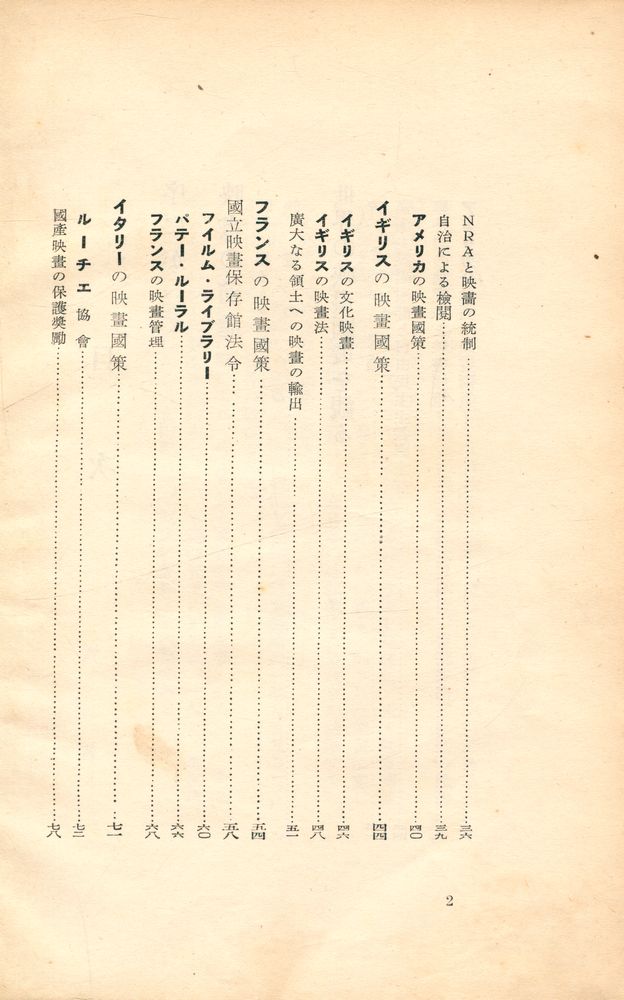 NRAと映畵の統制……三六
自治による檢閱……三九
アメリカの映畫國策……四〇
イギリスの映畫國策……四四
イギリスの文化映畫……四六
イギリスの映畫法……四八
廣大なる領土への映畫の輸出……五一
フランスの映畫國策……五四
國立映畫保存館法令……五八
フイルム・ライブラリー……六〇
パテー・ルーラル……六六
フランスの映畫管理……六八
イタリーの映畫國策……七一
ルーチエ協會……七二
國產映畫の保護獎勵……七八
2